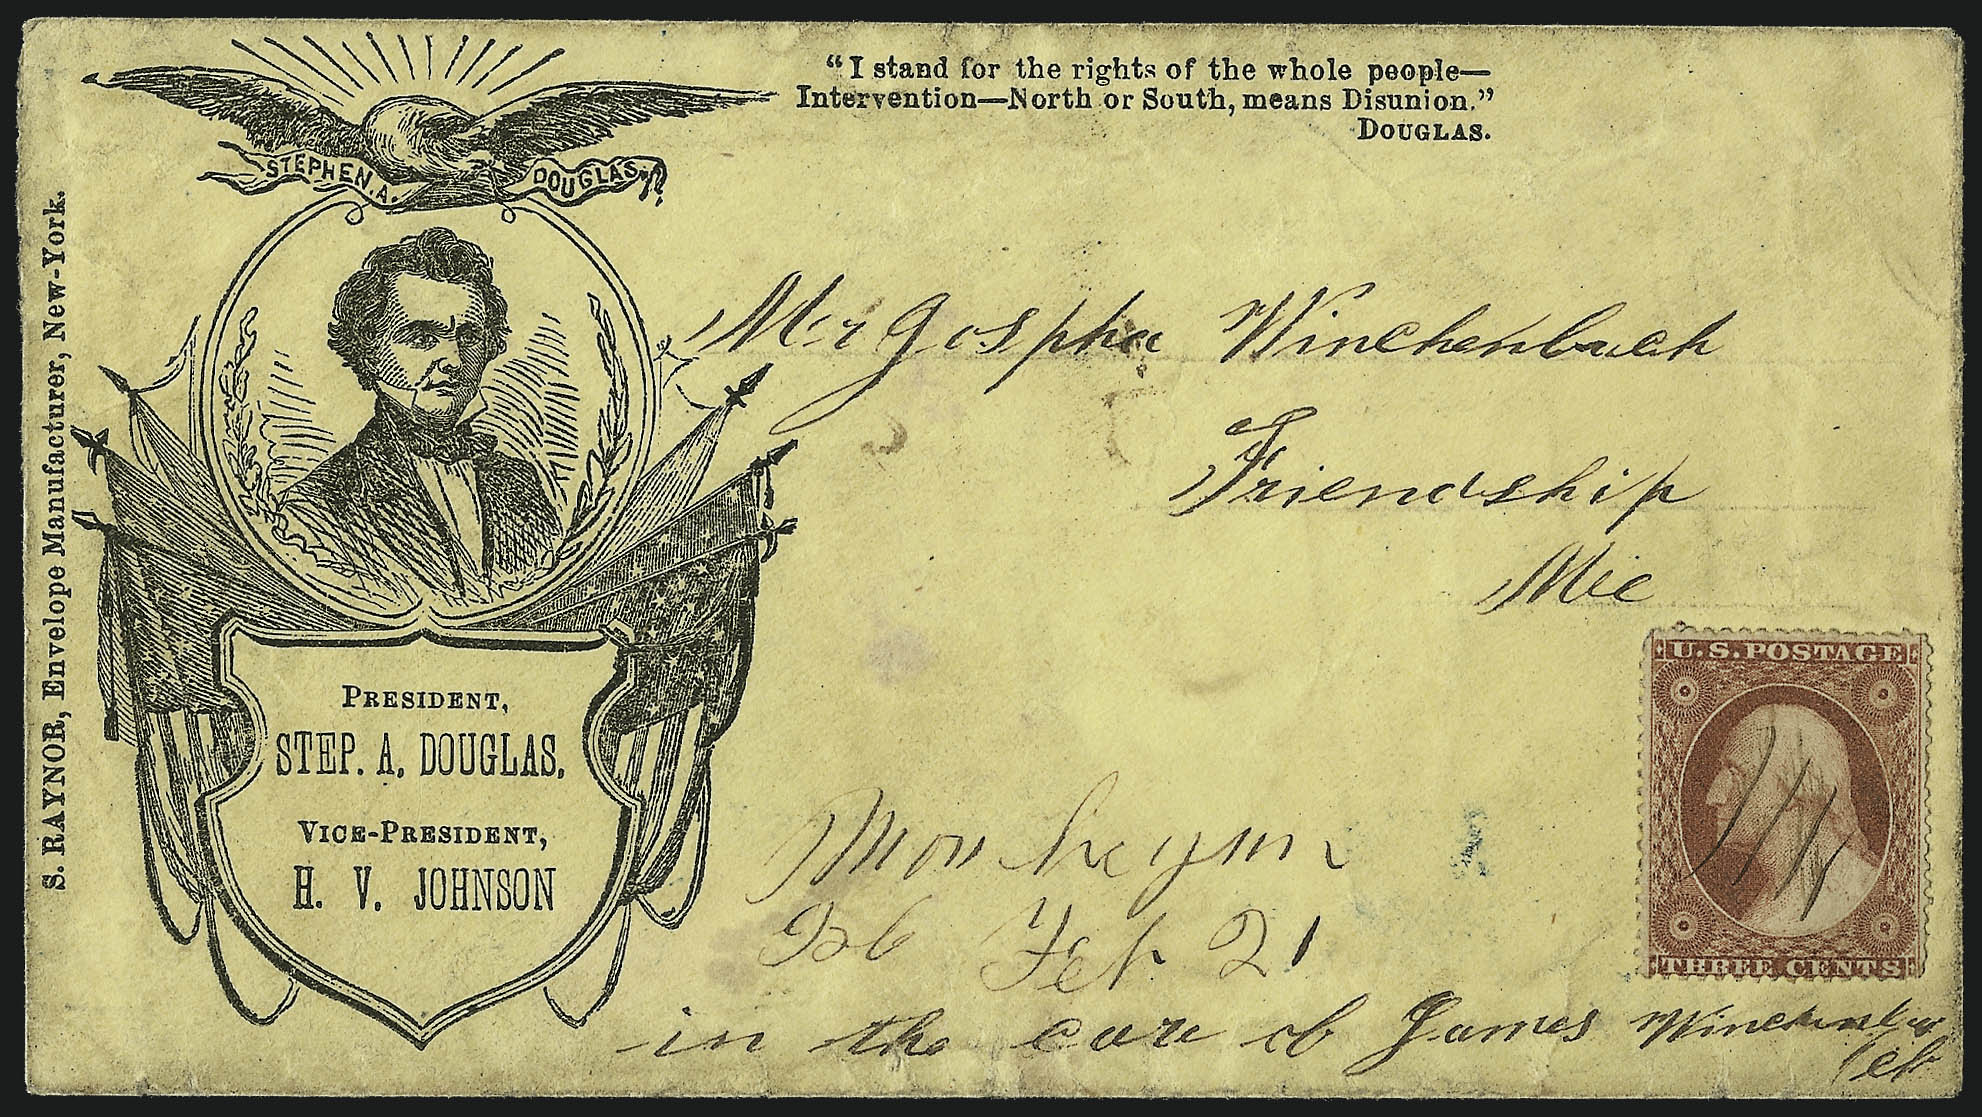 "I stand for the rights of the whole people—
Intervention—North or South, means Disunion."
DOUGLAS.
STEPHEN. A. DOUGLAS.
S. RAYNOR, Envelope Manufacturer, New-York.
Mr Jospha Winchenbach
Friendship
Me
PRESIDENT,
STEP. A. DOUGLAS.
VICE-PRESIDENT,
H. V. JOHNSON
U.S. POSTAGE
THREE CENTS
Feb 21
in the care of James